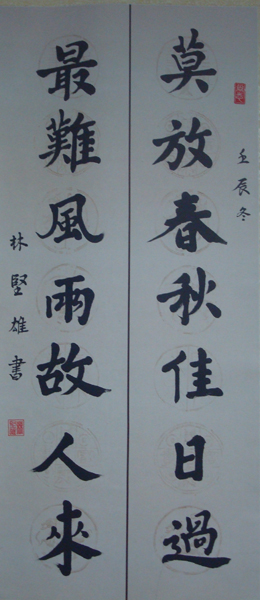 壬辰冬
莫放春秋佳日過
最難風雨故人來
林堅雄書